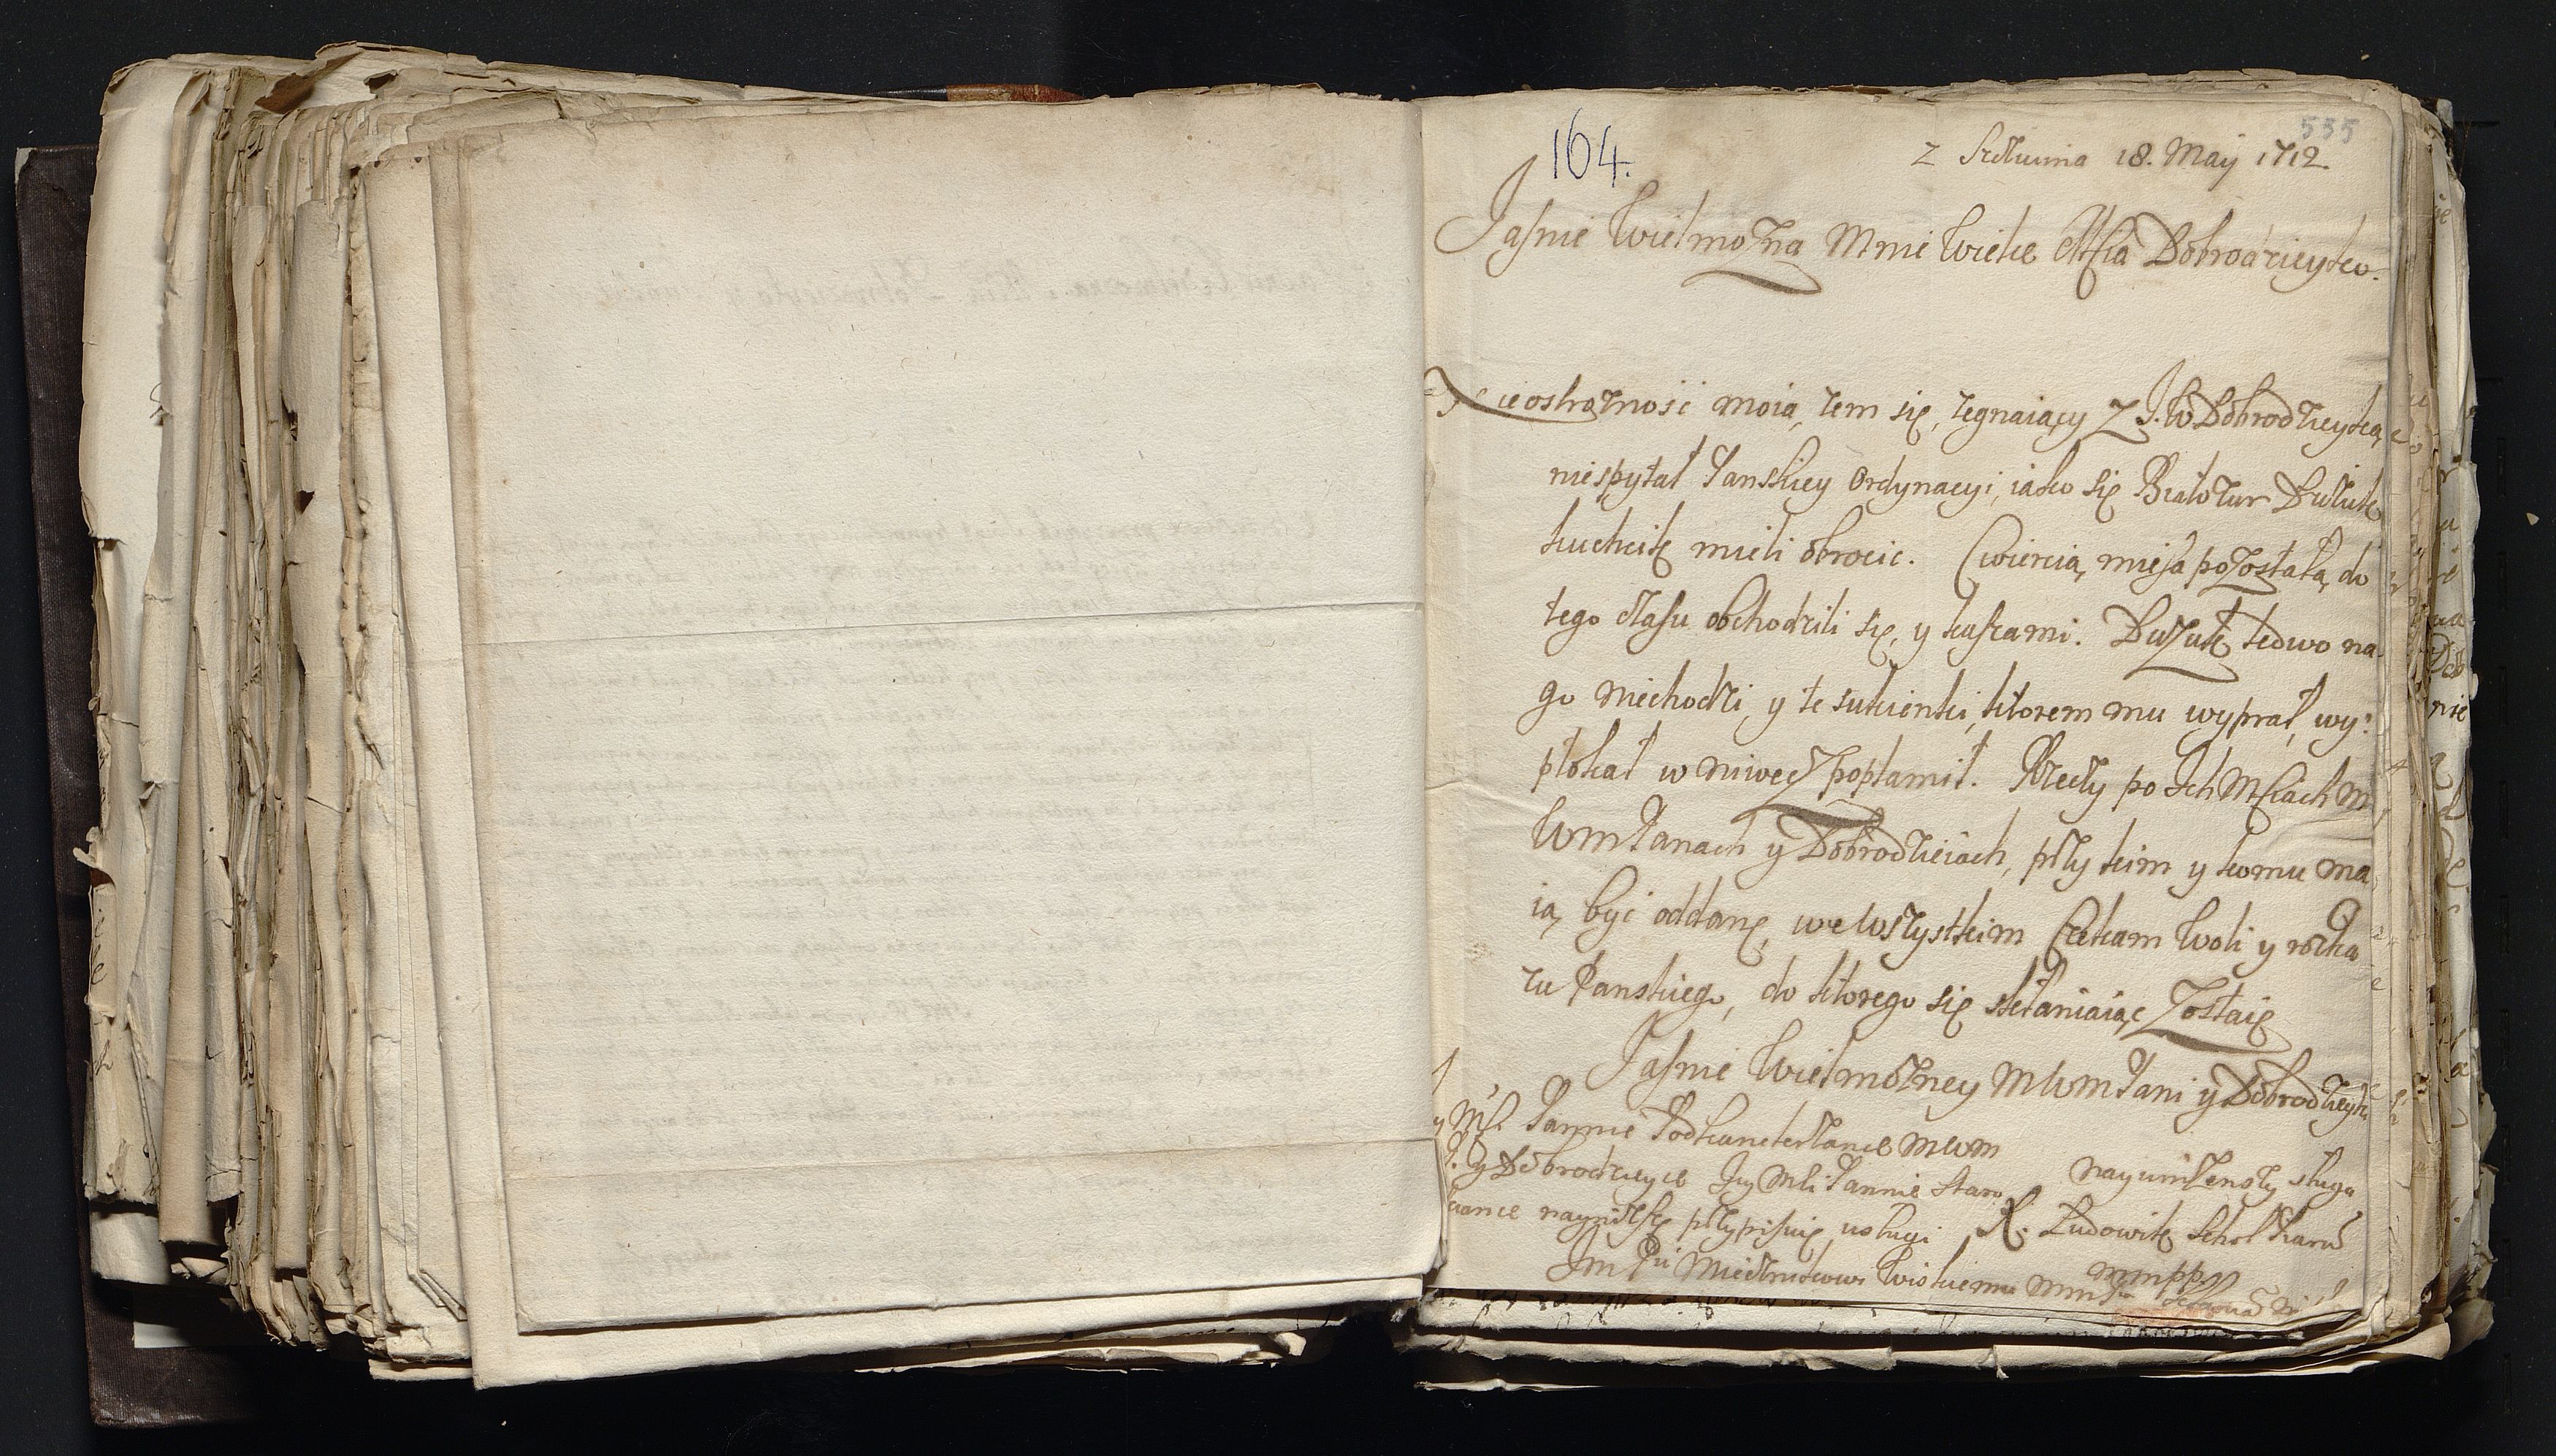 164.
555
Z 18. Maÿ 1712.
Jaśnie Wielmożna Mnie Wielce Mścia Dobrodzieyko.
Nieostrożność moia, żem się, żegnaiący z J. W Dobrodzieyką,
niespytał Panskiey Ordynacyi, iako się Białożur
kuchcik mieli obrocic. Cwiercią, mięsa pozostałą, do
tego czasu obchodzili się, y kaszami. ledwo na
go niechodzi, y te sukienki, ktorem mu wyprał, wy:
płokał w niwecz poplamił. Rzeczy po Ich Msciach M
WmPanach y Dobrodzieiach, przy kim y komu ma
ią, być oddane, we wszystkim Czekam Woli y roska
zu Panskiego, do ktorego się skłaniaiąc Zostaię
Jaśnie Wielmożney MWmPani y Dobrodzieyki
Pannie Podkanclerzance MWm
nayuniżenszy sługa
y Dobrodzieyce Jey Mści Pannie Staro
ściance nayniższe przypisuię usługi X. Ludowik
mmpp
Im Pu Miecznikowi